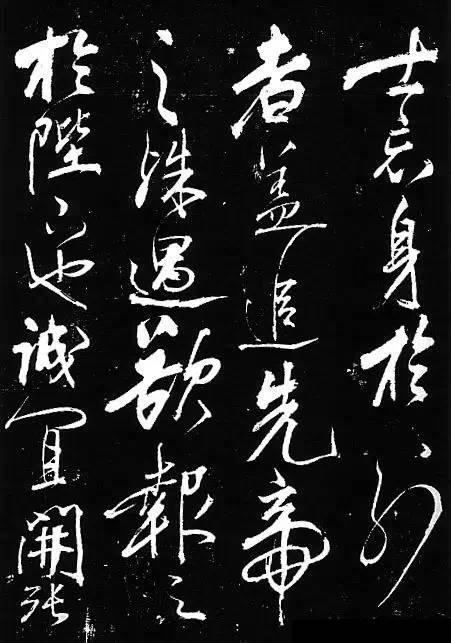 士忘身於外
者盖追先帝
之殊遇欲報之
於陛下也誠宜開张